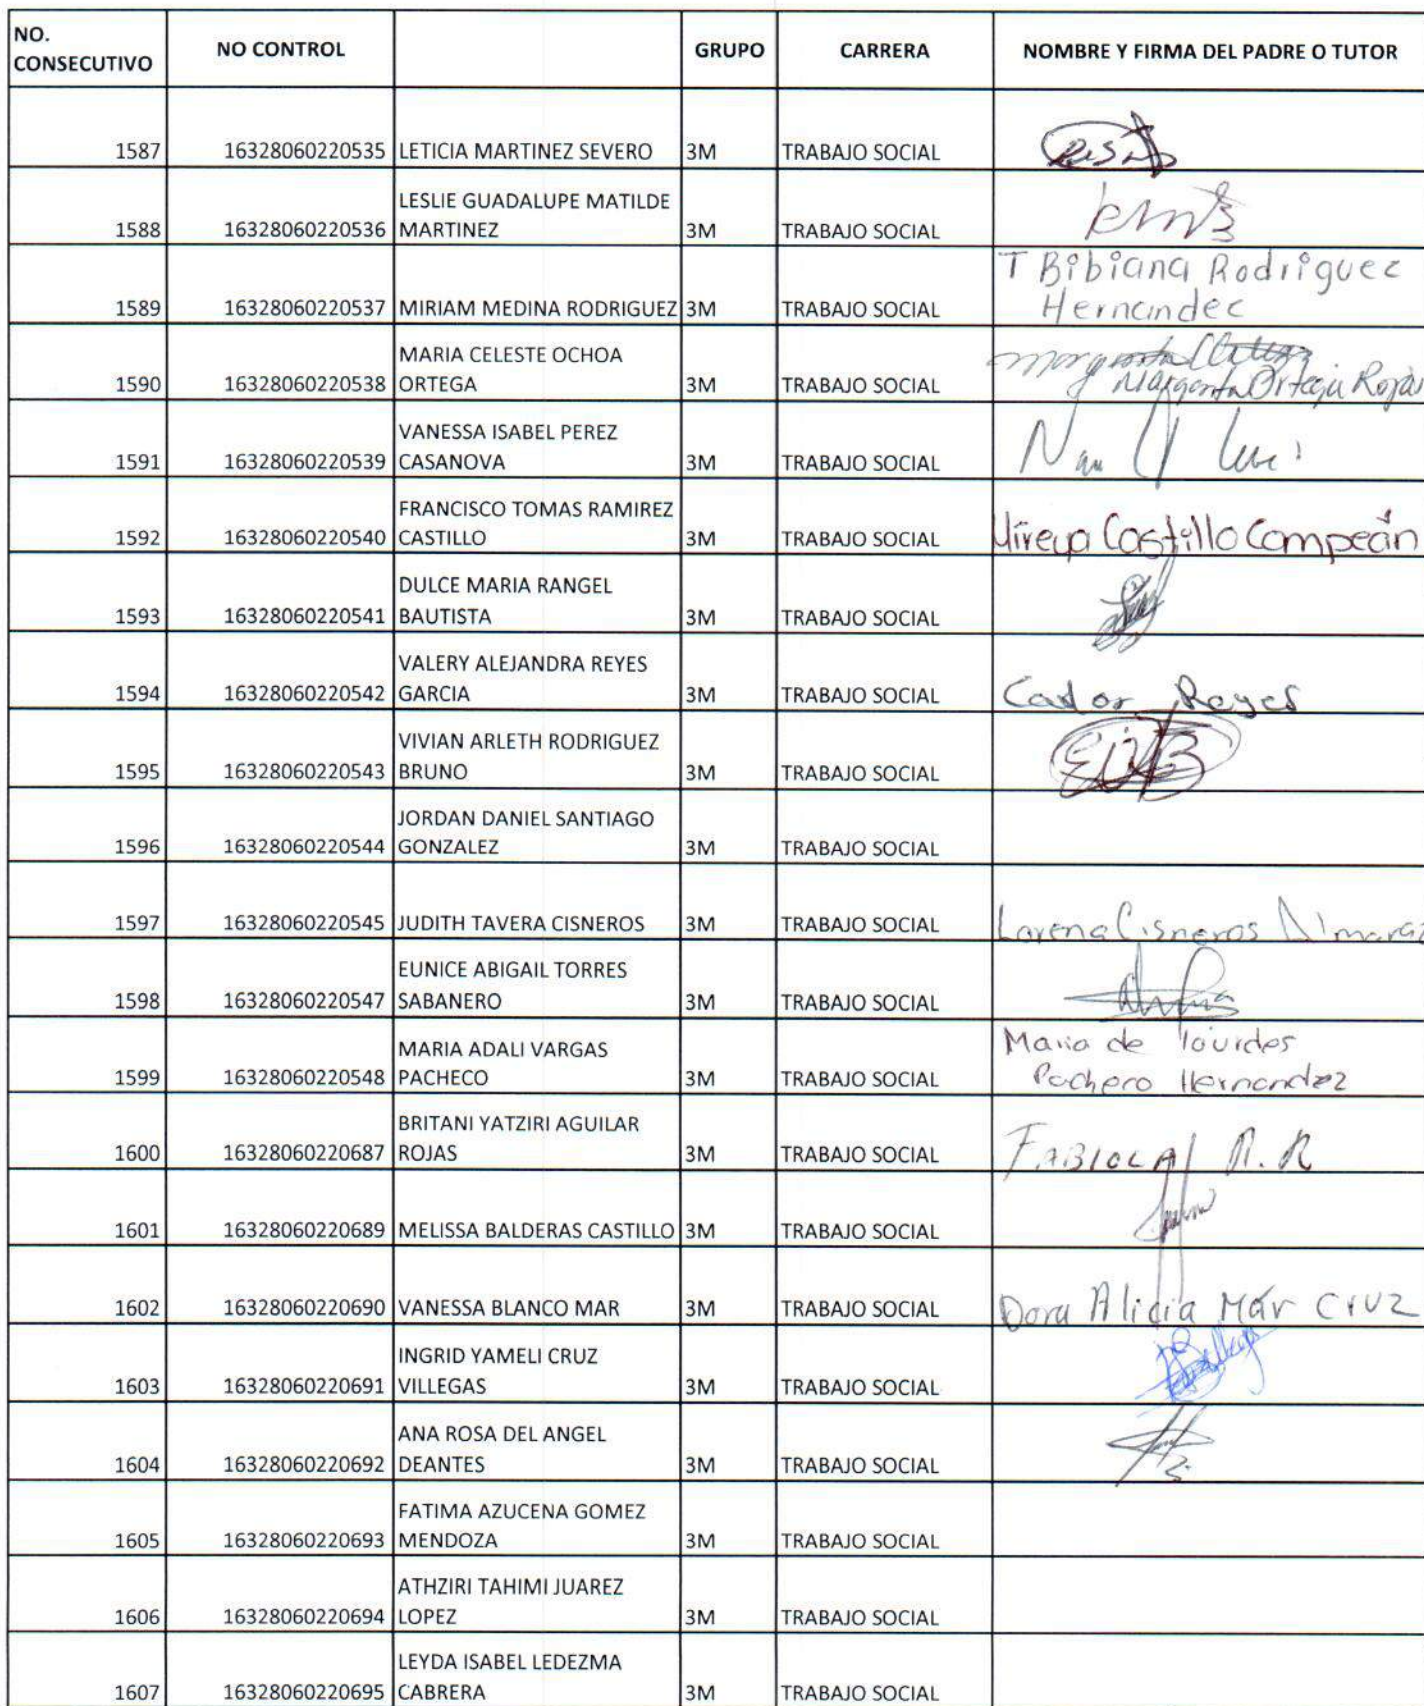 NO. CONSECUTIVO NO CONTROL GRUPO CARRERA NOMBRE Y FIRMA DEL PADRE O TUTOR
1587 16328060220535 LETICIA MARTINEZ SEVERO 3M TRABAJO SOCIAL
1588 16328060220536 LESLIE GUADALUPE MATILDE MARTINEZ 3M TRABAJO SOCIAL
1589 16328060220537 MIRIAM MEDINA RODRIGUEZ 3M TRABAJO SOCIAL T Bibiana Rodriguez Hernandec
1590 16328060220538 MARIA CELESTE OCHOA ORTEGA 3M TRABAJO SOCIAL Margarita Ortega Rojas
1591 16328060220539 VANESSA ISABEL PEREZ CASANOVA 3M TRABAJO SOCIAL
1592 16328060220540 FRANCISCO TOMAS RAMIREZ CASTILLO 3M TRABAJO SOCIAL Mireya Castillo Compeán
1593 16328060220541 DULCE MARIA RANGEL BAUTISTA 3M TRABAJO SOCIAL
1594 16328060220542 VALERY ALEJANDRA REYES GARCIA 3M TRABAJO SOCIAL Reyes
1595 16328060220543 VIVIAN ARLETH RODRIGUEZ BRUNO 3M TRABAJO SOCIAL
1596 16328060220544 JORDAN DANIEL SANTIAGO GONZALEZ 3M TRABAJO SOCIAL
1597 16328060220545 JUDITH TAVERA CISNEROS 3M TRABAJO SOCIAL Lorena Cisneros Almaraz
1598 16328060220547 EUNICE ABIGAIL TORRES SABANERO 3M TRABAJO SOCIAL
1599 16328060220548 MARIA ADALI VARGAS PACHECO 3M TRABAJO SOCIAL Maria de lourdes Pacheco Hernandez
1600 16328060220687 BRITANI YATZIRI AGUILAR ROJAS 3M TRABAJO SOCIAL FABIOLA R. R
1601 16328060220689 MELISSA BALDERAS CASTILLO 3M TRABAJO SOCIAL
1602 16328060220690 VANESSA BLANCO MAR 3M TRABAJO SOCIAL Dora Alicia Mar Cruz
1603 16328060220691 INGRID YAMELI CRUZ VILLEGAS 3M TRABAJO SOCIAL
1604 16328060220692 ANA ROSA DEL ANGEL DEANTES 3M TRABAJO SOCIAL
1605 16328060220693 FATIMA AZUCENA GOMEZ MENDOZA 3M TRABAJO SOCIAL
1606 16328060220694 ATHZIRI TAHIMI JUAREZ LOPEZ 3M TRABAJO SOCIAL
1607 16328060220695 LEYDA ISABEL LEDEZMA CABRERA 3M TRABAJO SOCIAL